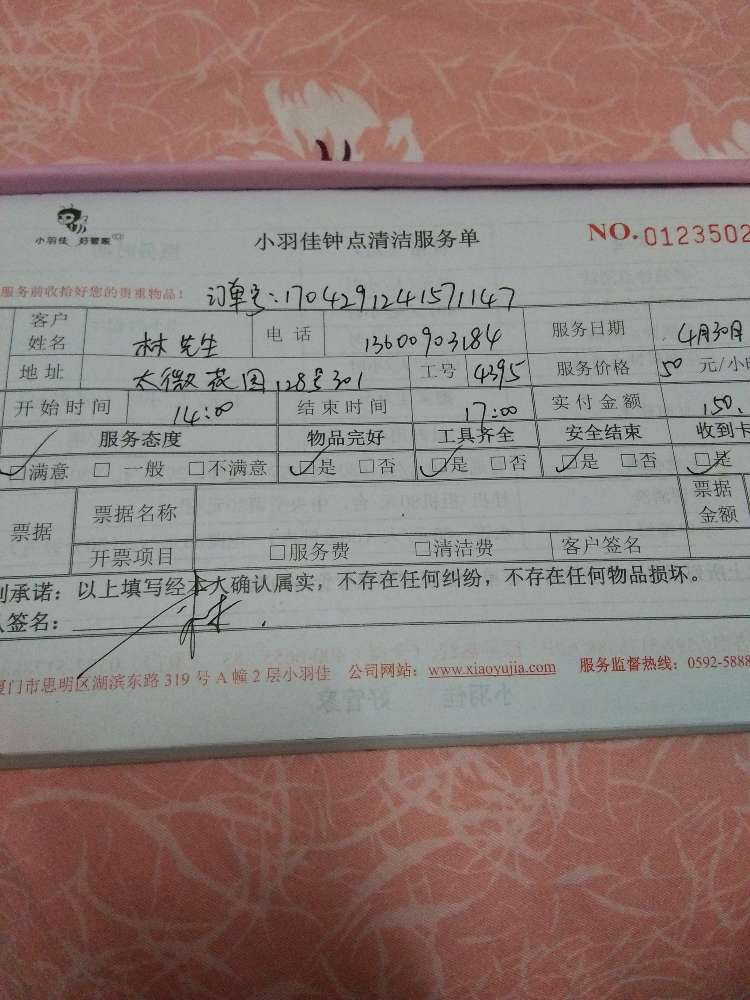 小羽佳 好管家
小羽佳钟点清洁服务单
NO.0123502
服务前收拾好您的贵重物品！ 订单号：1704291241571147
客户姓名 林先生 电话 13600903184 服务日期 4月30日
地址 太微花园128号301 工号 4395 服务价格 50 元/小
开始时间 14:00 结束时间 17:00 实付金额 150.
服务态度 物品完好 工具齐全 安全结束 收到卡
☑满意 □一般 □不满意 ☑是 □否 ☑是 □否 ☑是 □否 ☑是
票据 票据名称 票据金额
开票项目 □服务费 □清洁费 客户签名
承诺：以上填写经本人确认属实，不存在任何纠纷，不存在任何物品损坏。
签名： 林
厦门市思明区湖滨东路319号A幢2层小羽佳 公司网站：www.xiaoyujia.com 服务监督热线：0592-5888
小羽佳 好管家